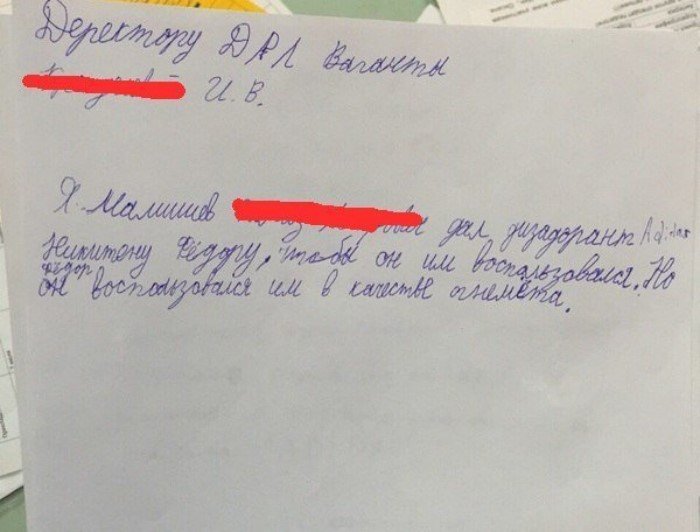 Деректору ДАЛ Ваганты
И.В.
Я. Малишев дал дизадорант Adidas
Никитену Фёдору, чтобы он им воспользовался. Но
Фёдор
он воспользовался им в качестве огнемёта.